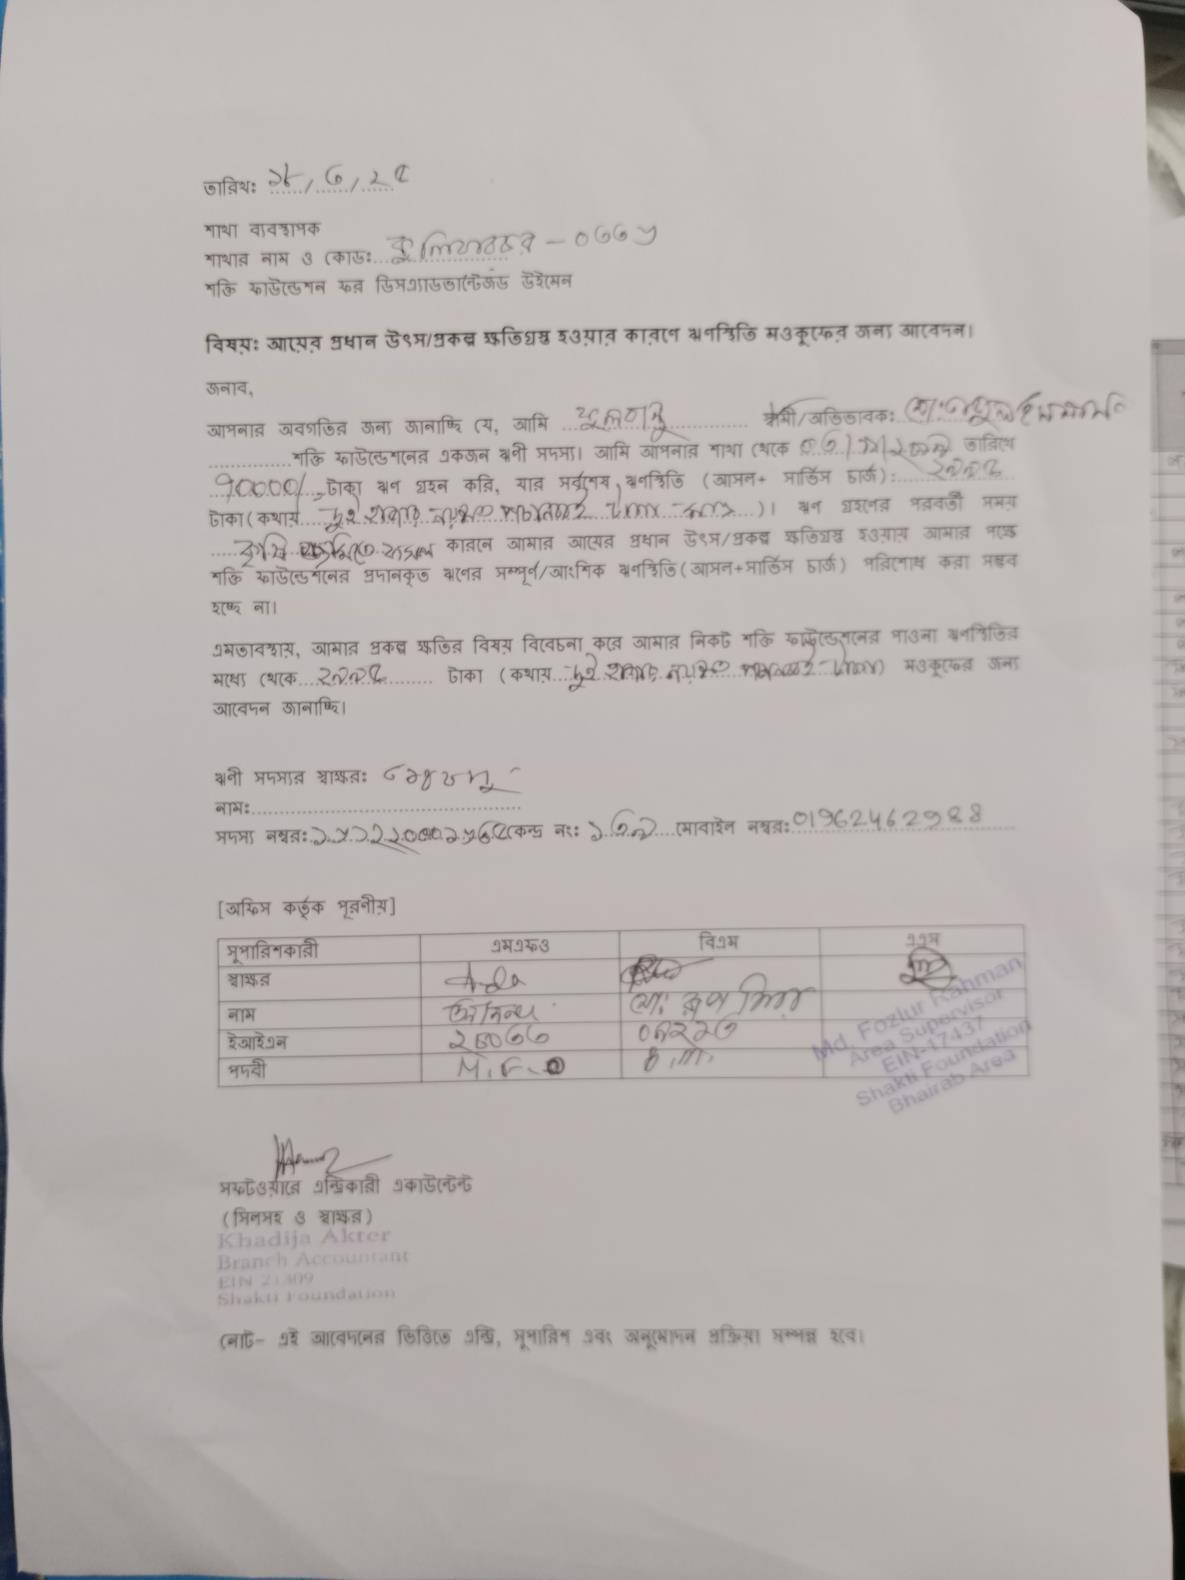 তারিখঃ ১৮/৬/২৫
শাখা ব্যবস্থাপক
শাখার নাম ও কোডঃ কুলিয়ারচর - ০৬৬
শক্তি ফাউন্ডেশন ফর ডিসএ্যাডভান্টেজড উইমেন
বিষয়ঃ আয়ের প্রধান উৎস/প্রকল্প ক্ষতিগ্রস্ত হওয়ার কারণে ঋণস্থিতি মওকুফের জন্য আবেদন।
জনাব,
আপনার অবগতির জন্য জানাচ্ছি যে, আমি ফুলবানু স্বামী/অভিভাবক: মো:
শক্তি ফাউন্ডেশনের একজন ঋণী সদস্য। আমি আপনার শাখা থেকে তারিখে
টাকা ঋণ গ্রহন করি, যার সর্বশেষ ঋণস্থিতি (আসল+ সার্ভিস চার্জ): ২৯৯৫
টাকা(কথায় দুই হাজার নয়শত পচানব্বই টাকা মাত্র)। ঋণ গ্রহনের পরবর্তী সময়
কৃষি কারনে আমার আয়ের প্রধান উৎস/প্রকল্প ক্ষতিগ্রস্ত হওয়ায় আমার পক্ষে
শক্তি ফাউন্ডেশনের প্রদানকৃত ঋণের সম্পূর্ণ/আংশিক ঋণস্থিতি(আসল+সার্ভিস চার্জ) পরিশোধ করা সম্ভব
হচ্ছে না।
এমতাবস্থায়, আমার প্রকল্প ক্ষতির বিষয় বিবেচনা করে আমার নিকট শক্তি ফাউন্ডেশনের পাওনা ঋণস্থিতির
মধ্যে থেকে ২৯৯৫ টাকা (কথায় দুই হাজার নয়শত পচানব্বই টাকা) মওকুফের জন্য
আবেদন জানাচ্ছি।
ঋণী সদস্যর স্বাক্ষরঃ
নামঃ
সদস্য নম্বরঃ কেন্দ্র নংঃ মোবাইল নম্বরঃ
[অফিস কর্তৃক পূরণীয়]
সুপারিশকারী এমএফও বিএম এএম
স্বাক্ষর
নাম মো: মিয়া
ইআইএন
পদবী M.F.O B.M.
Md. Fozlur Rahman
Area Supervisor
EIN-17437
Shakti Foundation
Bhairab Area
সফটওয়্যারে এন্ট্রিকারী একাউন্টেন্ট
(সিলসহ ও স্বাক্ষর)
Khadija Akter
Branch Accountant
EIN 21309
Shakti Foundation
নোট- এই আবেদনের ভিত্তিতে এন্ট্রি, সুপারিশ এবং অনুমোদন প্রক্রিয়া সম্পন্ন হবে।